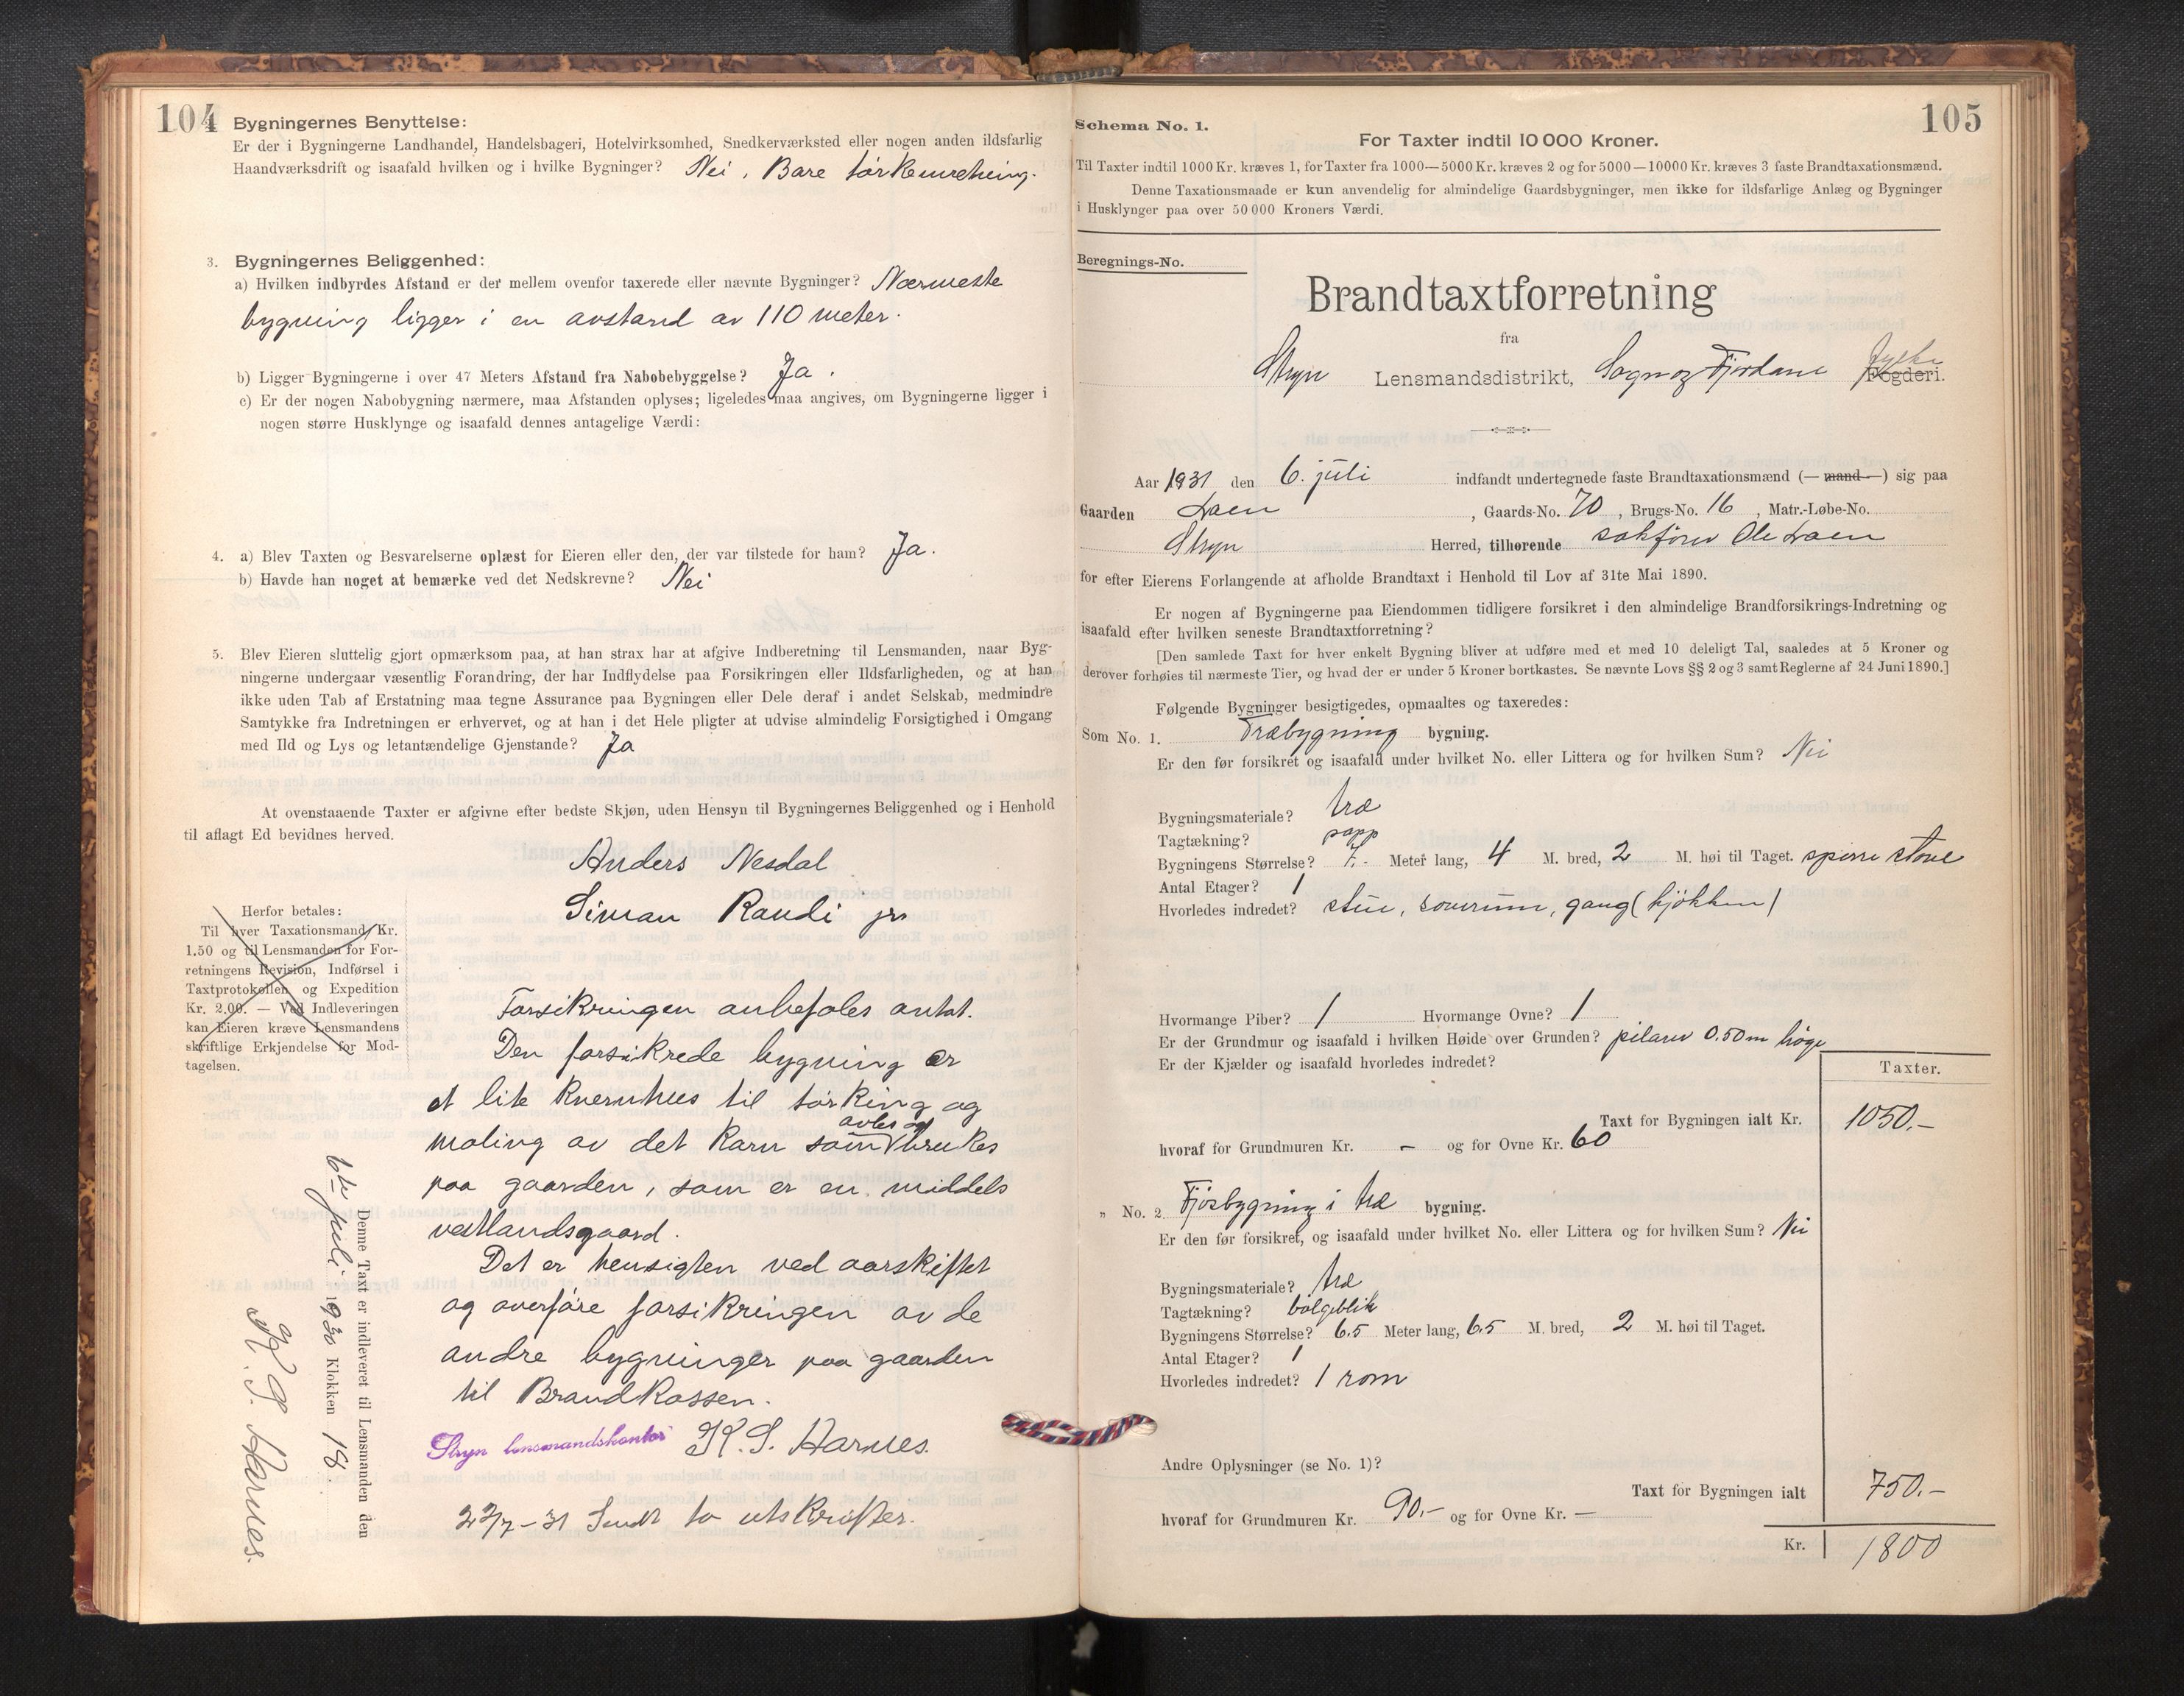 104
Bygningernes Benyttelse:
Er der i Bygningerne Landhandel, Handelsbageri, Hotelvirksomhed, Snedkerværksted eller nogen anden ildsfarlig
Haandværksdrift og isaafald hvilken og i hvilke Bygninger? Nei, Bare
3. Bygningernes Beliggenhed:
a) Hvilken indbyrdes Afstand er der mellem ovenfor taxerede eller nævnte Bygninger? Nærmeste
bygning ligger i en avstand av 110 meter.
b) Ligger Bygningerne i over 47 Meters Afstand fra Nabobebyggelse? Ja.
c) Er der nogen Nabobygning nærmere, maa Afstanden oplyses; ligeledes maa angives, om Bygningerne ligger i
nogen større Husklynge og isaafald dennes antagelige Værdi:
4. a) Blev Taxten og Besvarelserne oplæst for Eieren eller den, der var tilstede for ham? Ja.
b) Havde han noget at bemærke ved det Nedskrevne? Nei
5. Blev Eieren sluttelig gjort opmærksom paa, at han strax har at afgive Indberetning til Lensmanden, naar Byg-
ningerne undergaar væsentlig Forandring, der har Indflydelse paa Forsikringen eller Ildsfarligheden, og at han
ikke uden Tab af Erstatning maa tegne Assurance paa Bygningen eller Dele deraf i andet Selskab, medmindre
Samtykke fra Indretningen er erhvervet, og at han i det Hele pligter at udvise almindelig Forsigtighed i Omgang
med Ild og Lys og letantændelige Gjenstande? Ja
At ovenstaaende Taxter er afgivne efter bedste Skjøn, uden Hensyn til Bygningernes Beliggenhed og i Henhold
til aflagt Ed bevidnes herved.
Anders Nesdal
Simon Raudi jr
Herfor betales:
Til hver Taxationsmand Kr.
1.50 og til Lensmanden for For-
retningens Revision, Indførsel i
Taxtprotokollen og Expedition
Kr. 2.00. — Ved Indleveringen
kan Eieren kræve Lensmandens
skriftlige Erkjendelse for Mod-
tagelsen.
Forsikringen anbefales antat.
Den forsikrede bygning er
et lite kvernhus til törking og
maling av det korn som avles og brukes
paa gaarden, som er en middels
vestlandsgaard.
Det er hensigten ved aarskiftet
og overföre forsikringen av de
andre bygninger paa gaarden
til Brandkassen.
Stryn lensmandskontor K. S. Aarnes.
22/7-31 Sendt to utskrifter.
Denne Taxt er indleveret til Lensmanden den
6te juli 1930 Klokken 18.
K. S. Aarnes.
105
Schema No. 1.
For Taxter indtil 10 000 Kroner.
Til Taxter indtil 1000 Kr. kræves 1, for Taxter fra 1000—5000 Kr. kræves 2 og for 5000—10000 Kr. kræves 3 faste Brandtaxationsmænd.
Denne Taxationsmaade er kun anvendelig for almindelige Gaardsbygninger, men ikke for ildsfarlige Anlæg og Bygninger
i Husklynger paa over 50 000 Kroners Værdi.
Beregnings-No.
Brandtaxtforretning
fra
Stryn Lensmandsdistrikt, Sogn og Fjordane Fylke Fogderi.
Aar 1931 den 6. juli indfandt undertegnede faste Brandtaxationsmænd (— mand —) sig paa
Gaarden Loen, Gaards-No. 70, Brugs-No. 16, Matr.-Løbe-No.
Stryn Herred, tilhørende sakförer Ole Loen
for efter Eierens Forlangende at afholde Brandtaxt i Henhold til Lov af 31te Mai 1890.
Er nogen af Bygningerne paa Eiendommen tidligere forsikret i den almindelige Brandforsikrings-Indretning og
isaafald efter hvilken seneste Brandtaxtforretning?
[Den samlede Taxt for hver enkelt Bygning bliver at udføre med et med 10 deleligt Tal, saaledes at 5 Kroner og
derover forhøies til nærmeste Tier, og hvad der er under 5 Kroner bortkastes. Se nævnte Lovs §§ 2 og 3 samt Reglerne af 24 Juni 1890.]
Følgende Bygninger besigtigedes, opmaaltes og taxeredes:
Som No. 1. Træbygning bygning.
Er den før forsikret og isaafald under hvilket No. eller Littera og for hvilken Sum? Nei
Bygningsmateriale? træ
Tagtækning? papp
Bygningens Størrelse? 7.- Meter lang, 4 M. bred, 2 M. høi til Taget. sperre stove
Antal Etager? 1
Hvorledes indredet? stue, soverum, gang (kjökken)
Hvormange Piber? 1 Hvormange Ovne? 1
Er der Grundmur og isaafald i hvilken Høide over Grunden? pilarer 0.50 m höge
Er der Kjælder og isaafald hvorledes indredet?
Taxter.
Taxt for Bygningen ialt Kr. 1050.-
hvoraf for Grundmuren Kr. - og for Ovne Kr. 60
„ No. 2. Fjösbygning i træ bygning.
Er den før forsikret, og isaafald under hvilket No. eller Littera og for hvilken Sum? Nei
Bygningsmateriale? træ
Tagtækning? bölgeblik
Bygningens Størrelse? 6.5 Meter lang, 6.5 M. bred, 2 M. høi til Taget.
Antal Etager? 1
Hvorledes indredet? 1 rom
Andre Oplysninger (se No. 1)?
Taxt for Bygningen ialt 750.-
hvoraf for Grundmuren Kr. 90.- og for Ovne Kr. -
Kr. 1800